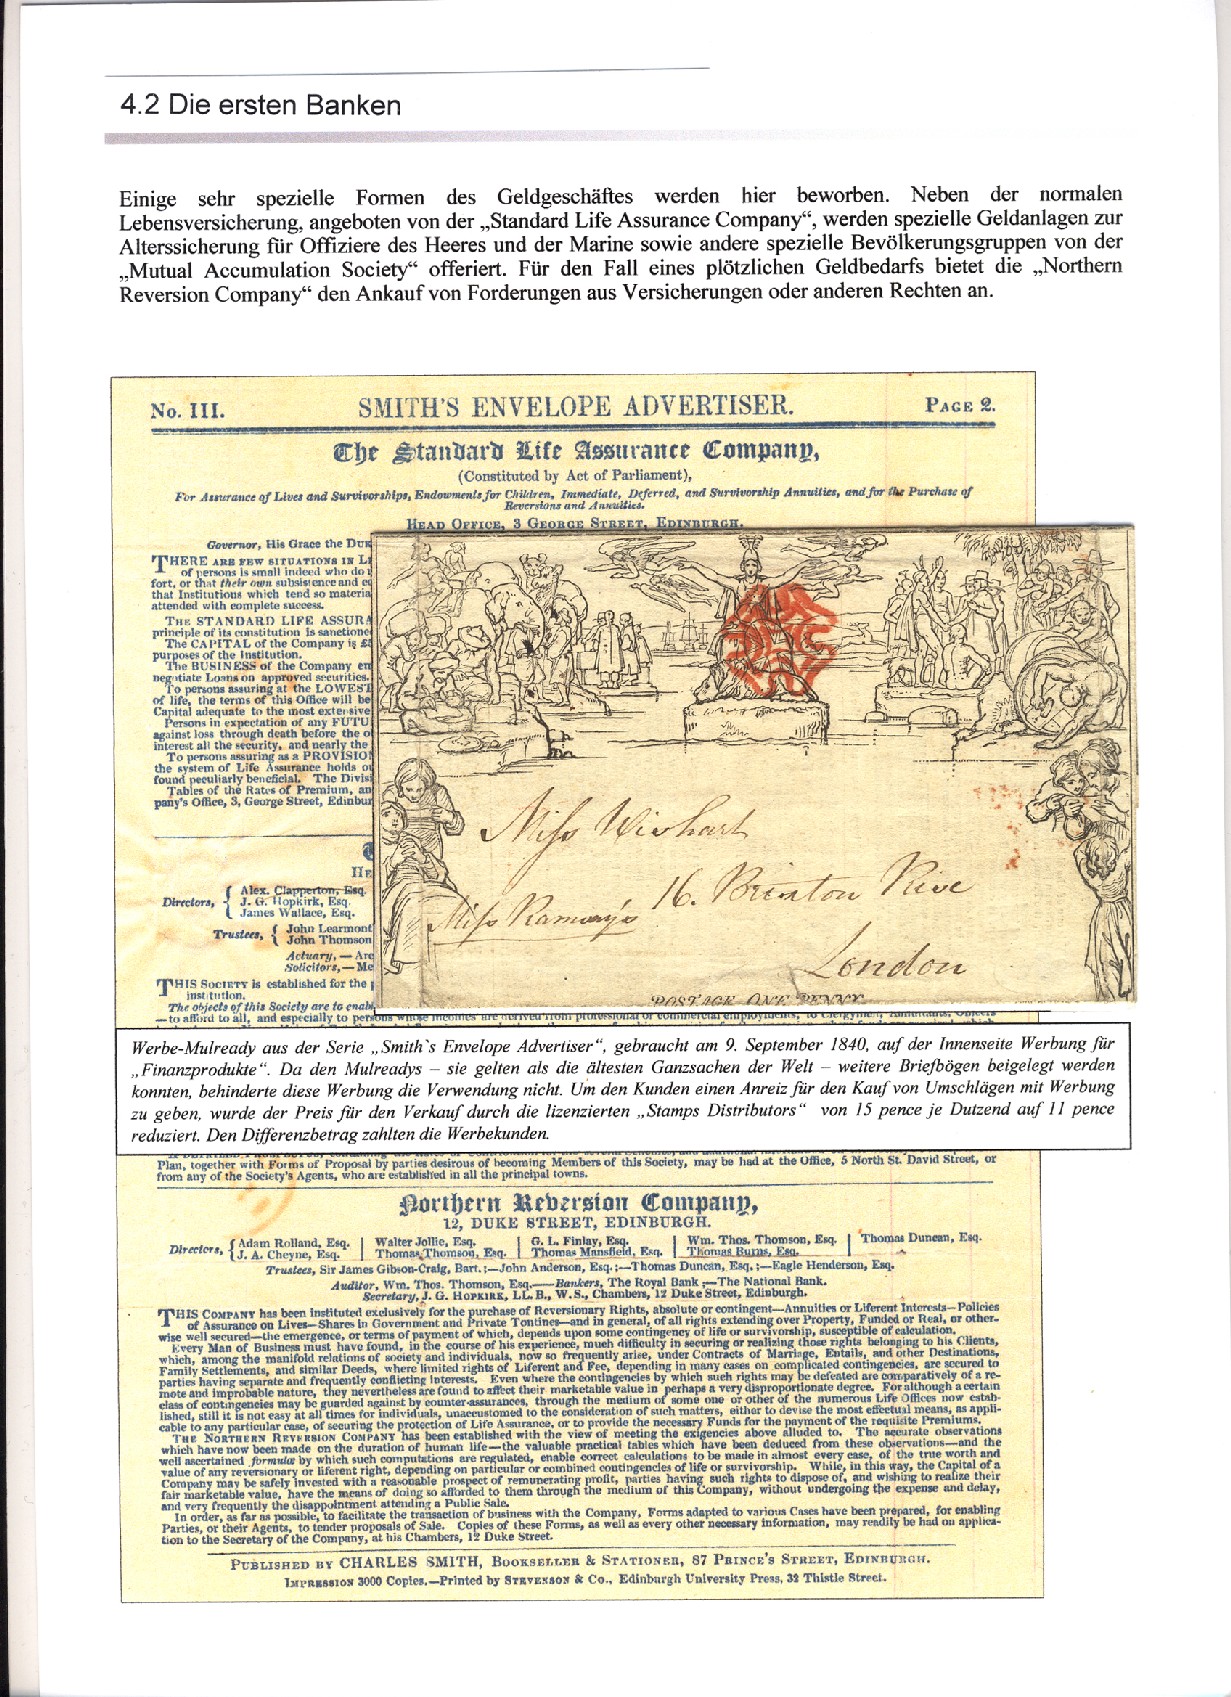 4.2 Die ersten Banken
Einige sehr spezielle Formen des Geldgeschäftes werden hier beworben. Neben der normalen
Lebensversicherung, angeboten von der „Standard Life Assurance Company“, werden spezielle Geldanlagen zur
Alterssicherung für Offiziere des Heeres und der Marine sowie andere spezielle Bevölkerungsgruppen von der
„Mutual Accumulation Society“ offeriert. Für den Fall eines plötzlichen Geldbedarfs bietet die „Northern
Reversion Company“ den Ankauf von Forderungen aus Versicherungen oder anderen Rechten an.
No. III. SMITH'S ENVELOPE ADVERTISER. PAGE 2.
The Standard Life Assurance Company,
(Constituted by Act of Parliament),
For Assurance of Lives and Survivorships, Endowments for Children, Immediate, Deferred, and Survivorship Annuities, and for the Purchase of
Reversions and Annuities.
HEAD OFFICE, 3 GEORGE STREET, EDINBURGH.
Governor, His Grace the
THERE ARE FEW SITUATIONS IN
of persons is small indeed who do
fort, or that their own subsistence and
that Institutions which tend so
attended with complete success.
THE STANDARD LIFE
principle of its constitution is
The CAPITAL of the Company is
purposes of the Institution.
The BUSINESS of the Company
negotiate Loans on approved securities.
To persons assuring at the LOWEST
of life, the terms of this Office will be
Capital adequate to the most extensive
Persons in expectation of any
against loss through death before the
interest all the security, and nearly the
To persons assuring as a
the system of Life Assurance holds
found peculiarly beneficial. The
Tables of the Rates of Premium,
pany's Office, 3, George Street,
Directors, Alex. Clapperton, Esq.
J. G. Hopkirk, Esq.
James Wallace, Esq.
Trustees, John Learmont
John Thomson
Actuary,—
Solicitors,—
THIS SOCIETY is established for the
institution.
The objects of this Society are to
—to afford to all, and especially to persons whose incomes are derived from professional or commercial employments, to Clergymen,
Miss Wishart
Miss Ramsay's 16. Brunton
London
POSTAGE ONE PENNY
Werbe-Mulready aus der Serie „Smith`s Envelope Advertiser“, gebraucht am 9. September 1840, auf der Innenseite Werbung für
„Finanzprodukte“. Da den Mulreadys – sie gelten als die ältesten Ganzsachen der Welt – weitere Briefbögen beigelegt werden
konnten, behinderte diese Werbung die Verwendung nicht. Um den Kunden einen Anreiz für den Kauf von Umschlägen mit Werbung
zu geben, wurde der Preis für den Verkauf durch die lizenzierten „Stamps Distributors“ von 15 pence je Dutzend auf 11 pence
reduziert. Den Differenzbetrag zahlten die Werbekunden.
Plan, together with Forms of Proposal by parties desirous of becoming Members of this Society, may be had at the Office, 5 North St. David Street, or
from any of the Society's Agents, who are established in all the principal towns.
Northern Reversion Company,
12, DUKE STREET, EDINBURGH.
Directors, Adam Rolland, Esq. Walter Jollie, Esq. G. L. Finlay, Esq. Wm. Thos. Thomson, Esq. Thomas Duncan, Esq.
J. A. Cheyne, Esq. Thomas Thomson, Esq. Thomas Mansfield, Esq. Thomas Burns, Esq.
Trustees, Sir James Gibson-Craig, Bart.;—John Anderson, Esq.;—Thomas Duncan, Esq.;—Eagle Henderson, Esq.
Auditor, Wm. Thos. Thomson, Esq.—Bankers, The Royal Bank;—The National Bank.
Secretary, J. G. HOPKIRK, LL.B., W.S., Chambers, 12 Duke Street, Edinburgh.
THIS COMPANY has been instituted exclusively for the purchase of Reversionary Rights, absolute or contingent—Annuities or Liferent Interests—Policies
of Assurance on Lives—Shares in Government and Private Tontines—and in general, of all rights extending over Property, Funded or Real, or other-
wise well secured—the emergence, or terms of payment of which, depends upon some contingency of life or survivorship, susceptible of calculation.
Every Man of Business must have found, in the course of his experience, much difficulty in securing or realizing those rights belonging to his Clients,
which, among the manifold relations of society and individuals, now so frequently arise, under Contracts of Marriage, Entails, and other Destinations,
Family Settlements, and similar Deeds, where limited rights of Liferent and Fee, depending in many cases on complicated contingencies, are secured to
parties having separate and frequently conflicting interests. Even where the contingencies by which such rights may be defeated are comparatively of a re-
mote and improbable nature, they nevertheless are found to affect their marketable value in perhaps a very disproportionate degree. For although a certain
class of contingencies may be guarded against by counter-assurances, through the medium of some one or other of the numerous Life Offices now estab-
lished, still it is not easy at all times for individuals, unaccustomed to the consideration of such matters, either to devise the most effectual means, as appli-
cable to any particular case, of securing the protection of Life Assurance, or to provide the necessary Funds for the payment of the requisite Premiums.
THE NORTHERN REVERSION COMPANY has been established with the view of meeting the exigencies above alluded to. The accurate observations
which have now been made on the duration of human life—the valuable practical tables which have been deduced from these observations—and the
well ascertained formulæ by which such computations are regulated, enable correct calculations to be made in almost every case, of the true worth and
value of any reversionary or liferent right, depending on particular or combined contingencies of life or survivorship. While, in this way, the Capital of a
Company may be safely invested with a reasonable prospect of remunerating profit, parties having such rights to dispose of, and wishing to realize their
fair marketable value, have the means of doing so afforded to them through the medium of this Company, without undergoing the expense and delay,
and very frequently the disappointment attending a Public Sale.
In order, as far as possible, to facilitate the transaction of business with the Company, Forms adapted to various Cases have been prepared, for enabling
Parties, or their Agents, to tender proposals of Sale. Copies of these Forms, as well as every other necessary information, may readily be had on applica-
tion to the Secretary of the Company, at his Chambers, 12 Duke Street.
PUBLISHED BY CHARLES SMITH, BOOKSELLER & STATIONER, 87 PRINCE'S STREET, EDINBURGH.
IMPRESSION 3000 Copies.—Printed by STEVENSON & Co., Edinburgh University Press, 32 Thistle Street.